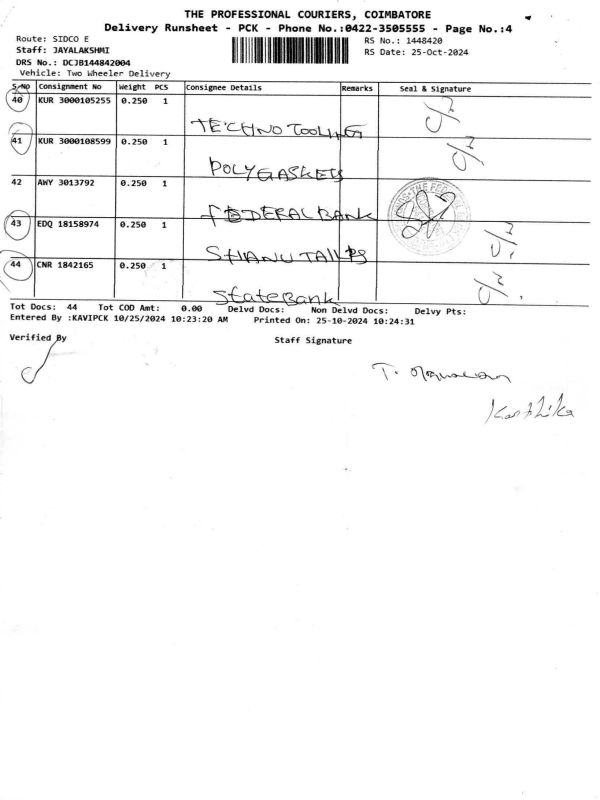 THE PROFESSIONAL COURIERS, COIMBATORE
Delivery Runsheet - PCK - Phone No.:0422-3505555 - Page No.:4
Route: SIDCO E RS No.: 1448420
Staff: JAYALAKSHMI RS Date: 25-Oct-2024
DRS No.: DCJB144842004
Vehicle: Two Wheeler Delivery
S.No Consignment No Weight PCS Consignee Details Remarks Seal & Signature
40 KUR 3000105255 0.250 1
TECHNO TOOLING
41 KUR 3000108599 0.250 1
POLYGASKETS
42 AWY 3013792 0.250 1
FEDERAL BANK
43 EDQ 18158974 0.250 1
SHANU
44 CNR 1842165 0.250 1
State Bank
Tot Docs: 44 Tot COD Amt: 0.00 Delvd Docs: Non Delvd Docs: Delvy Pts:
Entered By :KAVIPCK 10/25/2024 10:23:20 AM Printed On: 25-10-2024 10:24:31
Verified By Staff Signature
Karthika